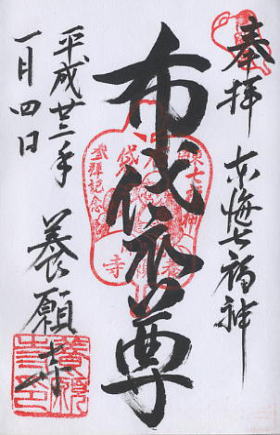 奉拝 東海七福神
布袋尊
平成廿三年
一月四日
養願寺